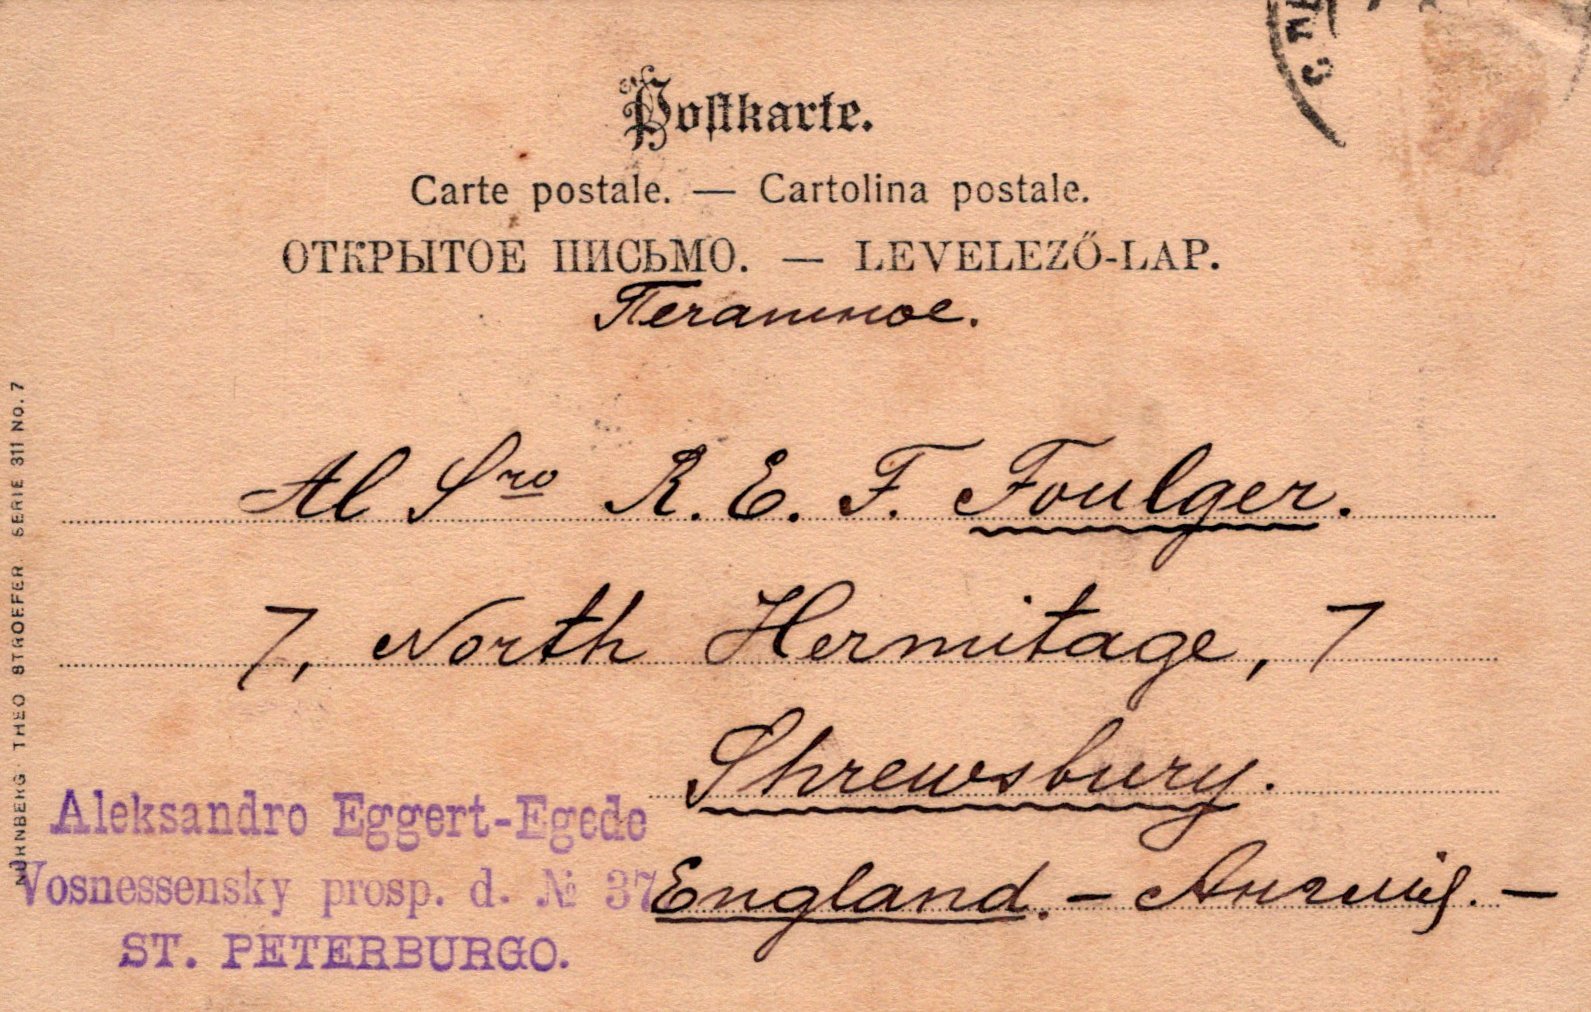 Postkarte.
Carte postale. — Cartolina postale.
ОТКРЫТОЕ ПИСЬМО. — LEVELEZŐ-LAP.
Печатное.
Al Sro R. E. F. Foulger.
7, North Hermitage, 7
Shrewsbury.
England. – Англія. –
Aleksandro Eggert-Egede
Vosnessensky prosp. d. № 37
ST. PETERBURGO.
NÜRNBERG · THEO STROEFER SERIE 311 No. 7